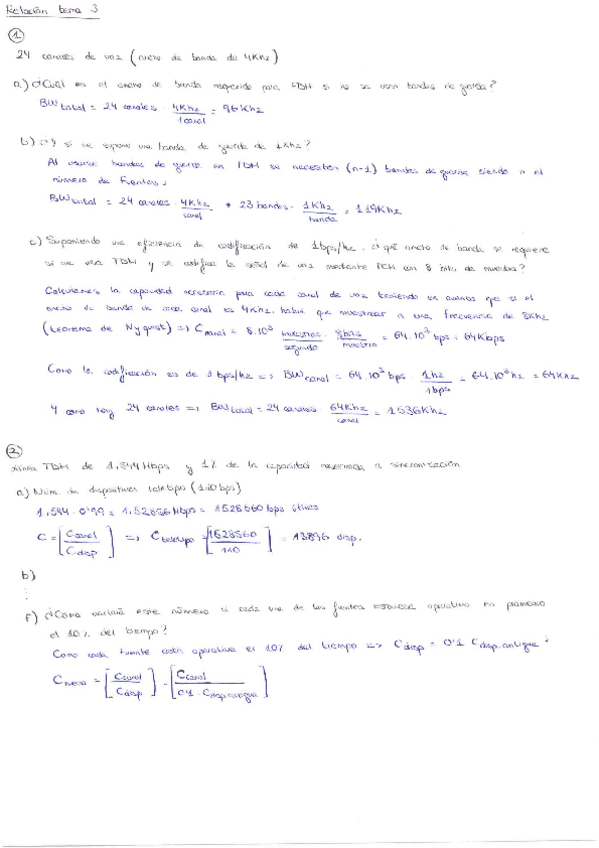 Relación tema 3
1
24 canales de voz (ancho de banda de 4Khz)
a) ¿Cuál es el ancho de banda requerido para FDM si no se usan bandas de guarda?
BW total = 24 canales · 4Khz / 1 canal = 96 Khz
b) ¿Y si se supone una banda de guarda de 1Khz?
Al usarse bandas de guarda en FDM se necesitan (n-1) bandas de guarda siendo n el
número de fuentes:
BW total = 24 canales · 4Khz / canal + 23 bandas · 1Khz / banda = 119Khz
c) Suponiendo una eficiencia de codificación de 1bps/hz. ¿qué ancho de banda se requiere
si se usa TDM y se codifica la señal de voz mediante PCM con 8 bits de muestra?
Calculamos la capacidad necesaria para cada canal de voz teniendo en cuenta que si el
ancho de banda de cada canal es 4Khz, habrá que muestrear a una frecuencia de 8Khz
(teorema de Nyquist) => C canal = 8·10³ muestras / segundo · 8bits / muestra = 64·10³ bps = 64Kbps
Como la codificación es de 1 bps/hz => BW canal = 64·10³ bps · 1hz / 1bps = 64·10³ hz = 64Khz
Y como hay 24 canales => BW total = 24 canales · 64Khz / canal = 1536Khz
2
Línea TDM de 1,544Mbps y 1% de la capacidad reservada a sincronización
a) Núm. de dispositivos teletipo (110bps)
1,544 · 0'99 = 1,52856Mbps = 1528560bps útiles
C = [C canal / C disp] => C teletipo = [1528560 / 110] = 13896 disp.
b)
⋮
f) ¿Cómo variaría este número si cada una de las fuentes estuviese operativa en promedio
el 10% del tiempo?
Como cada fuente está operativa el 10% del tiempo => C disp = 0'1 C disp.antigua :
C nueva = [C canal / C disp] = [C canal / 0'1 · C disp antigua]